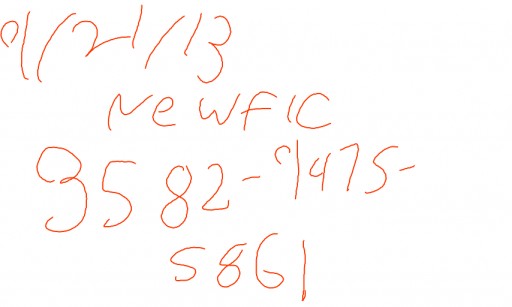 9/21/13
NewFIC
3582-9475-
5861